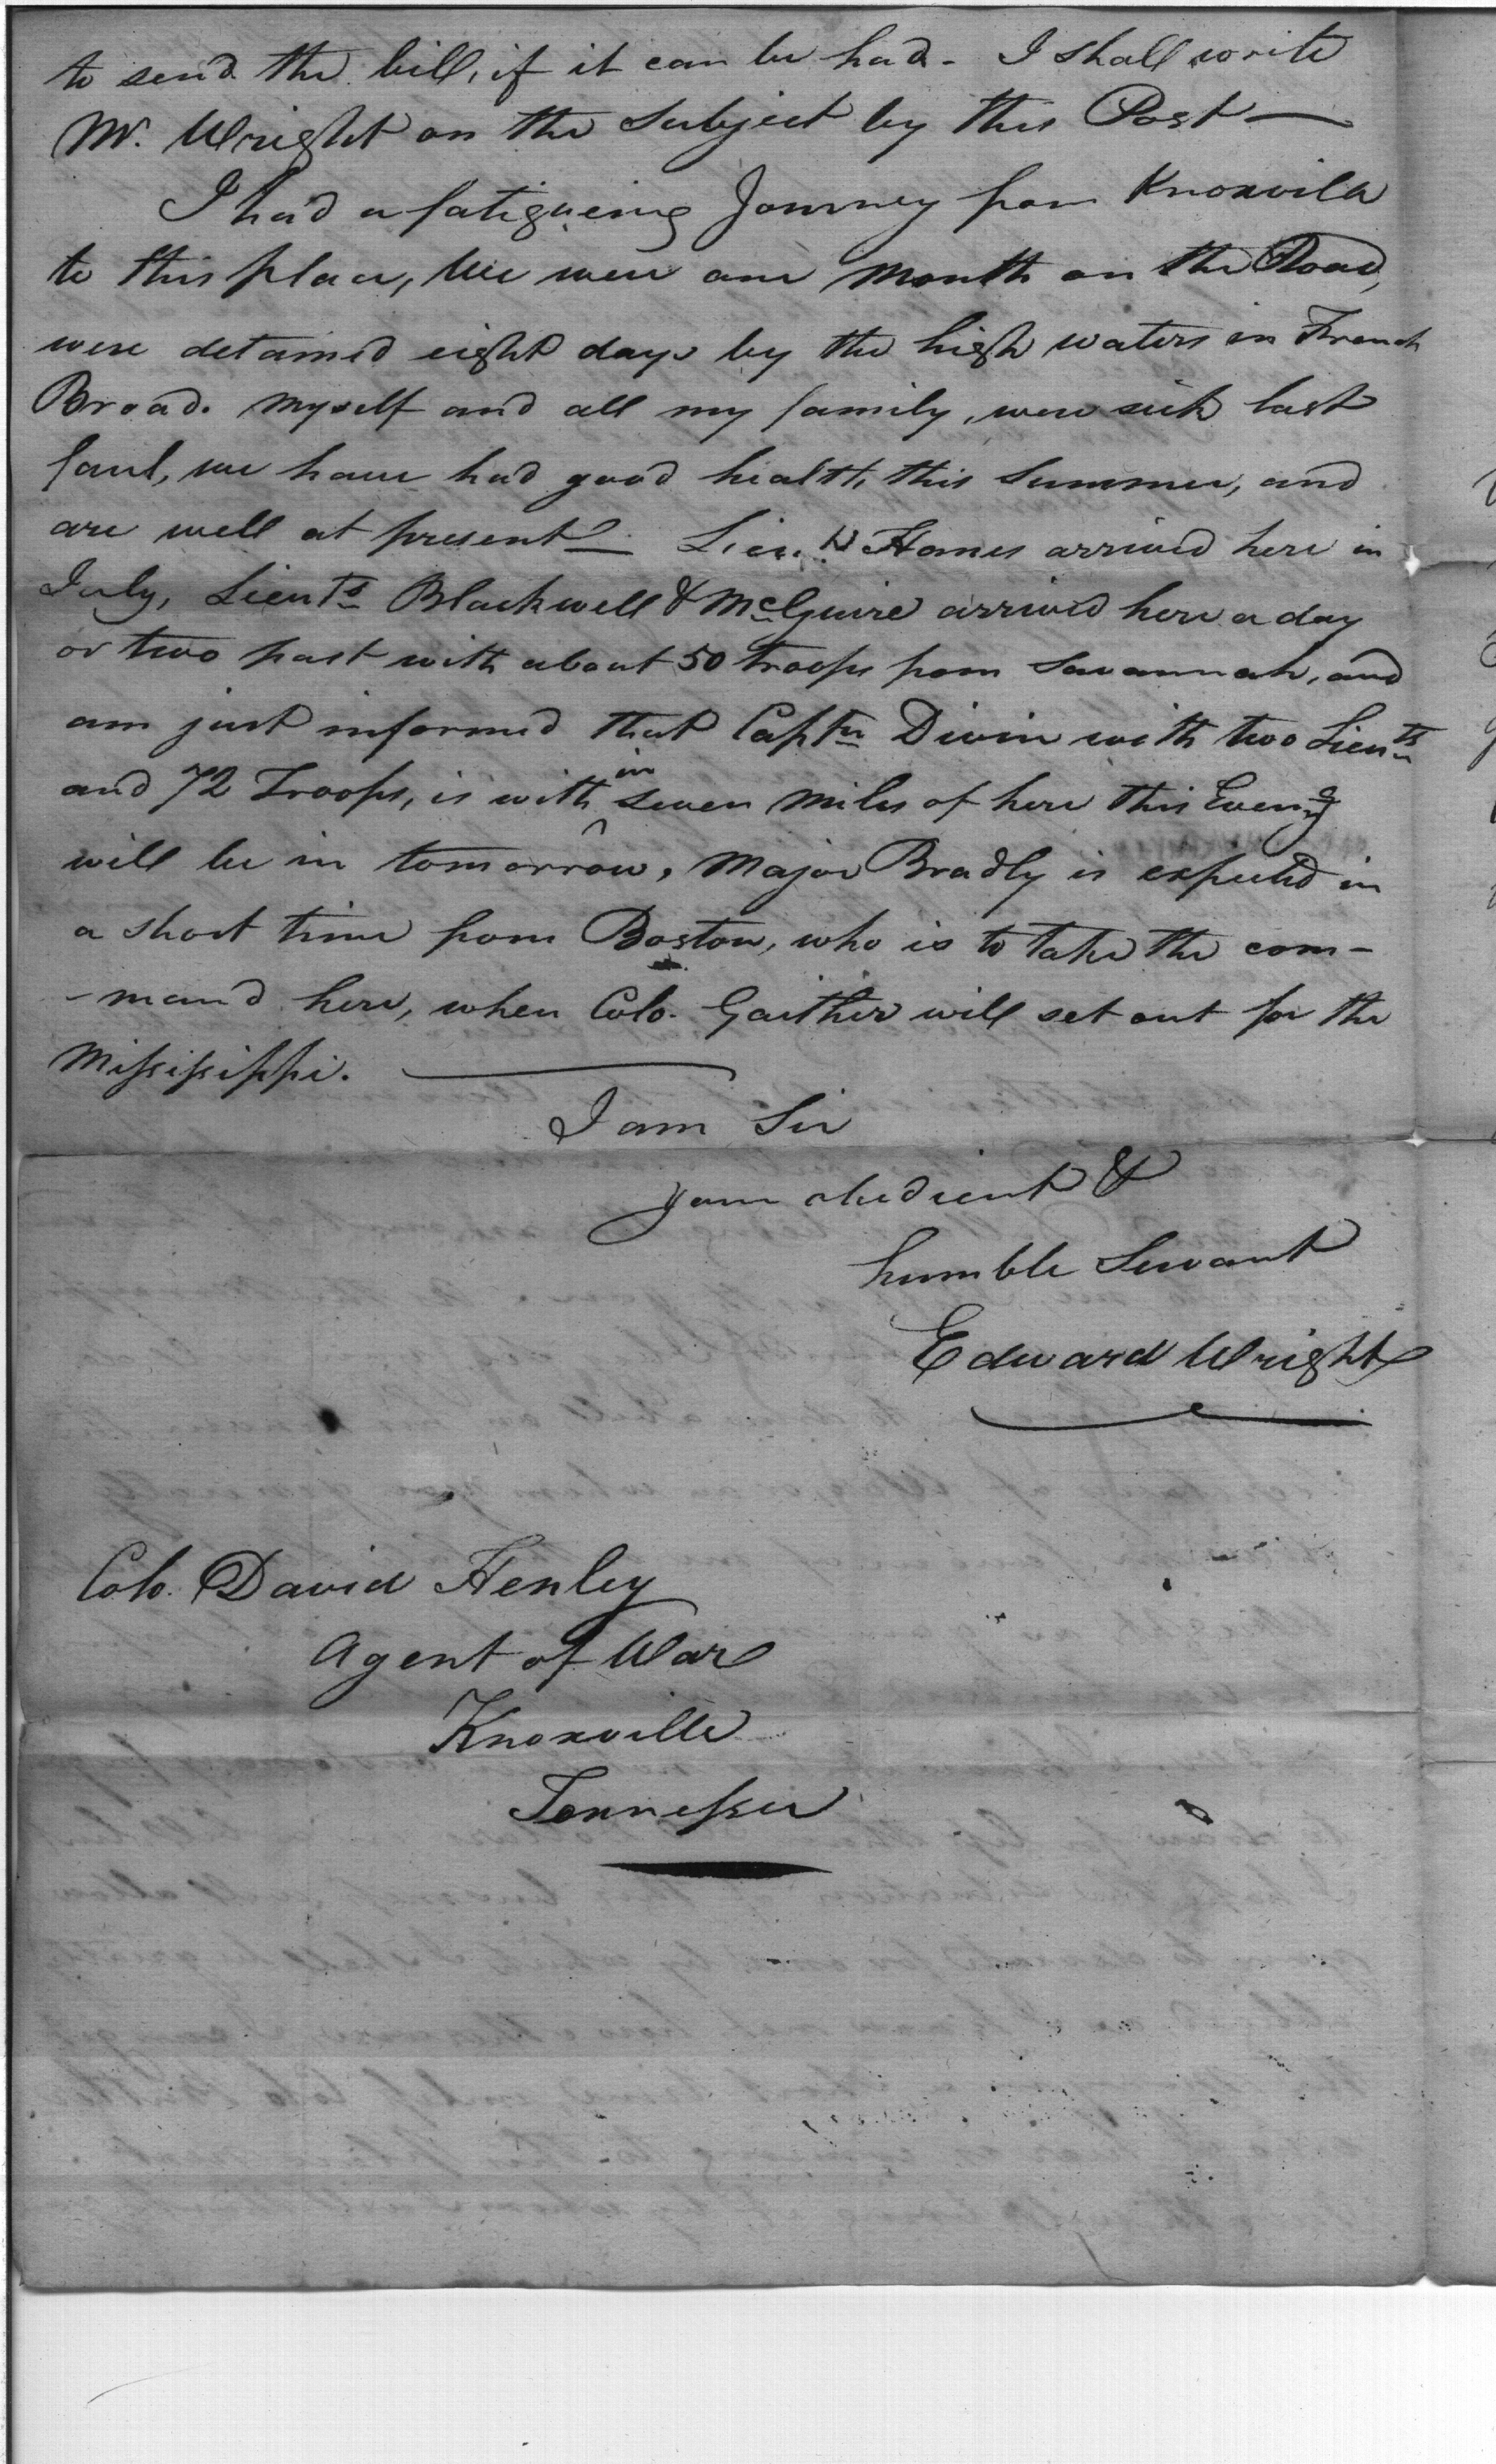 to send the bill, if it can be had - I shall write
Mr. Wright on the Subject by this Post —
I had a fatigueing Journey from Knoxvill
to this place, We were one Month on the Road,
were detained eight days by the high waters in French
Broad. Myself and all my family, were sick last
faul, we have had good health this Summer, and
are well at present — Lieut. Homes arrived here in
July, Lieuts Blackwell & McGuire arrived here a day
or two past with about 50 troops from Savannah, and
am just informed that Captn Divin with two Lieuts
and 72 Troops, is with in seven Miles of here this Eveng
will be in tomorrow, Major Bradly is expected in
a short time from Boston, who is to take the com-
-mand here, when Colo. Gaither will set out for the
Missisippi.
I am Sir
your obedient &
humble Servant
Edward Wright
Colo. David Henley
Agent of War
Knoxville
Tennessee